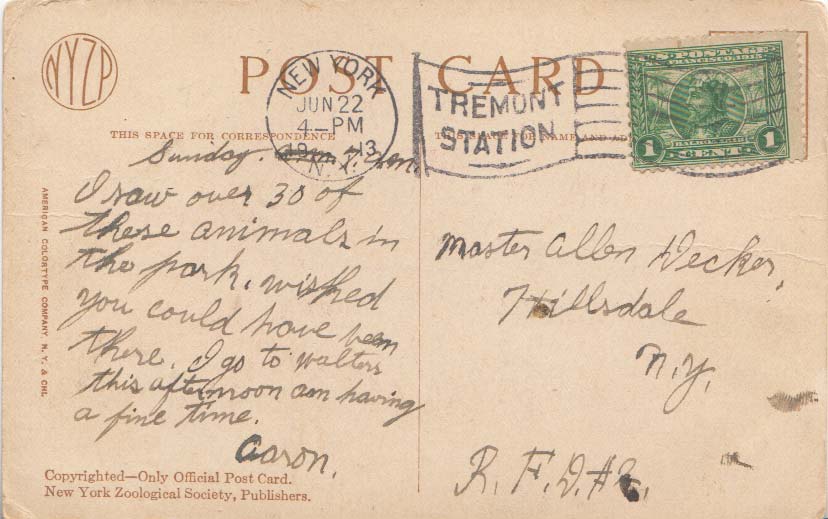 NYZP
POST CARD
NEW YORK
JUN 22
4-PM
1913
N.Y.
TREMONT
STATION
U.S. POSTAGE
SAN FRANCISCO 1915
BALBOA 1513
1 CENT 1
THIS SPACE FOR CORRESPONDENCE
Sunday.
I saw over 30 of
these animals in
the park, wished
you could have been
there. I go to Walters
this afternoon am having
a fine time.
Aaron.
Master Allen Decker,
Hillsdale
N.Y.
R. F. D. #2.
AMERICAN COLORTYPE COMPANY N. Y. & CHI.
Copyrighted—Only Official Post Card.
New York Zoological Society, Publishers.